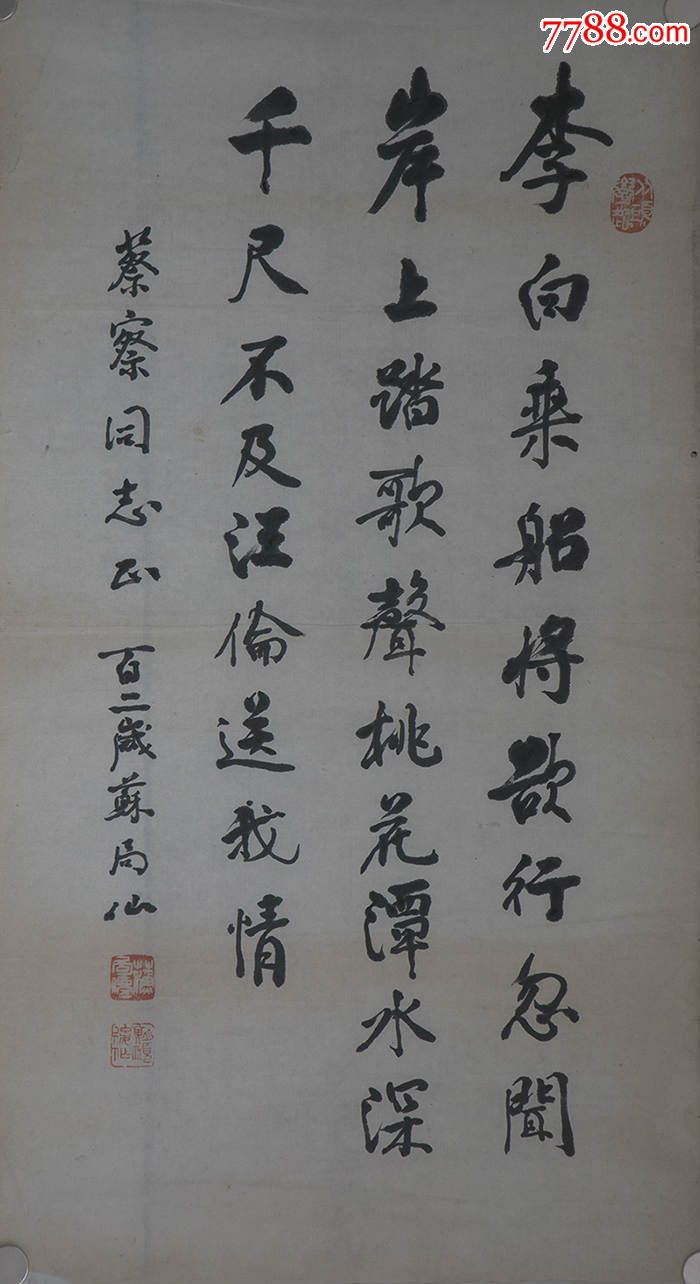 7788.com
李白乘船將欲行忽聞
岸上踏歌聲桃花潭水深
千尺不及汪倫送我情
蔡察同志正 百二歲蘇局仙